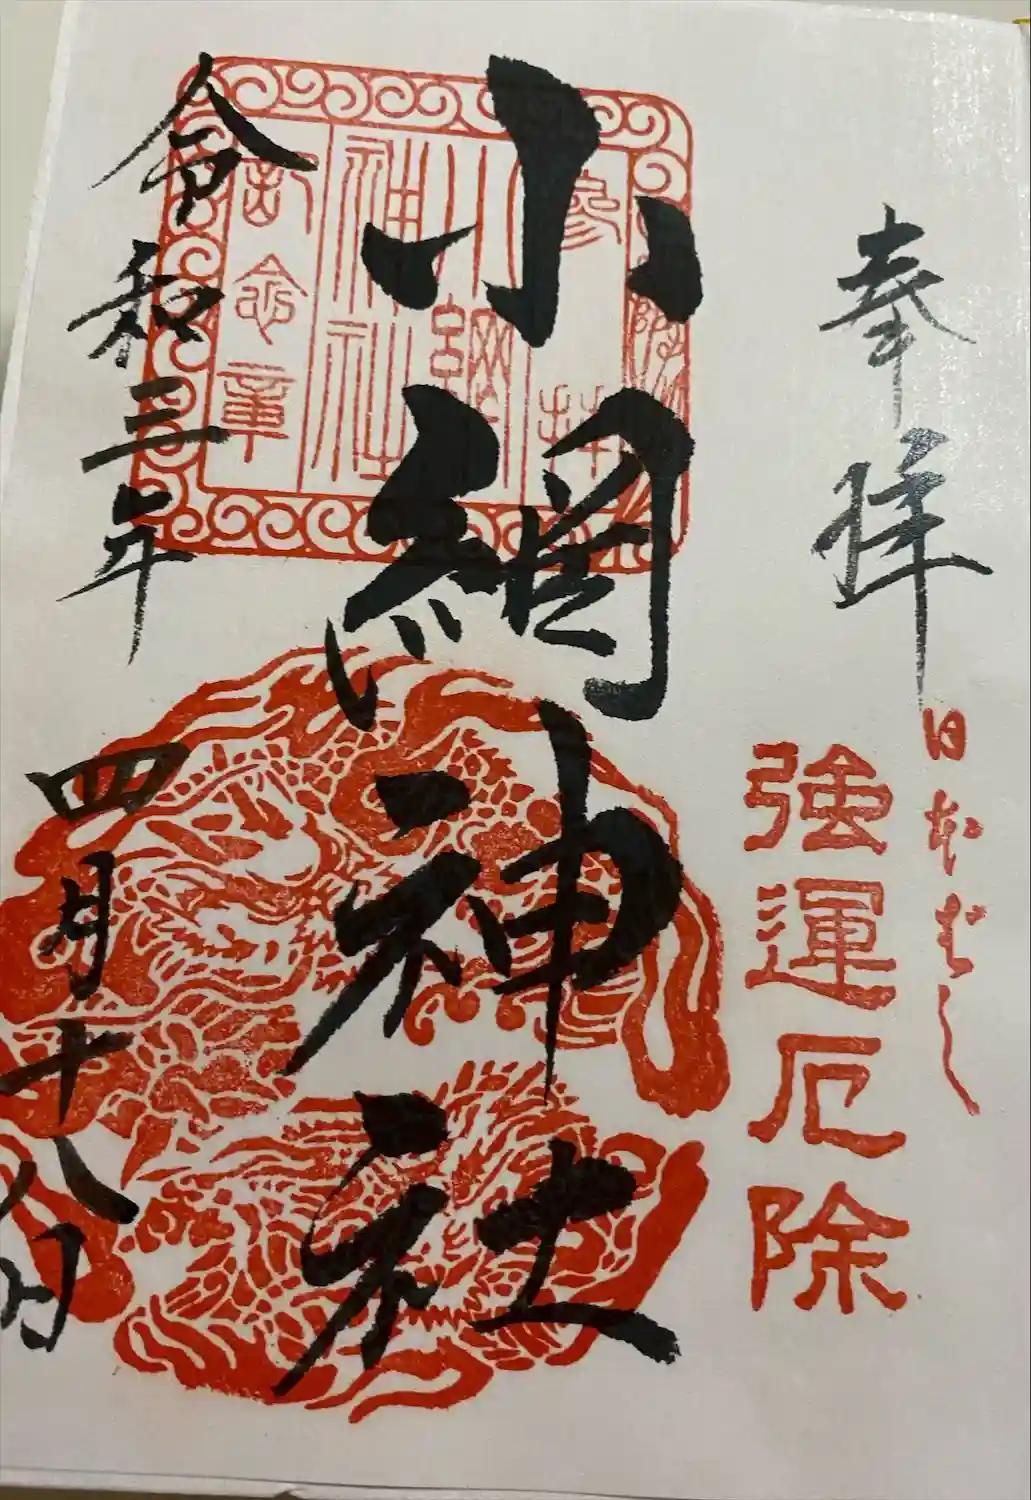 奉拝
日本ばし
強運厄除
小網神社
参拝
小網神社
記念章
令和三年
四月十八日